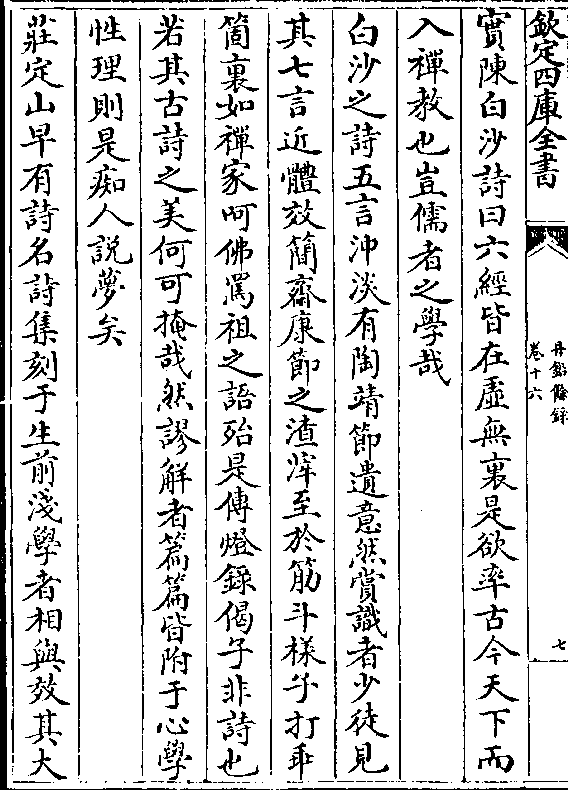 欽定四庫全書
丹鉛餘錄
卷十六
七
實陳白沙詩曰六經皆在虛無裏是欲率古今天下而
入禪教也豈儒者之學哉
白沙之詩五言沖淡有陶靖節遺意然賞識者少徒見
其七言近體效簡齋康節之渣滓至於筋斗樣子打乖
箇裏如禪家呵佛罵祖之語殆是傳燈錄偈子非詩也
若其古詩之美何可掩哉然謬解者篇篇皆附于心學
性理則是痴人說夢矣
莊定山早有詩名詩集刻于生前淺學者相與效其大